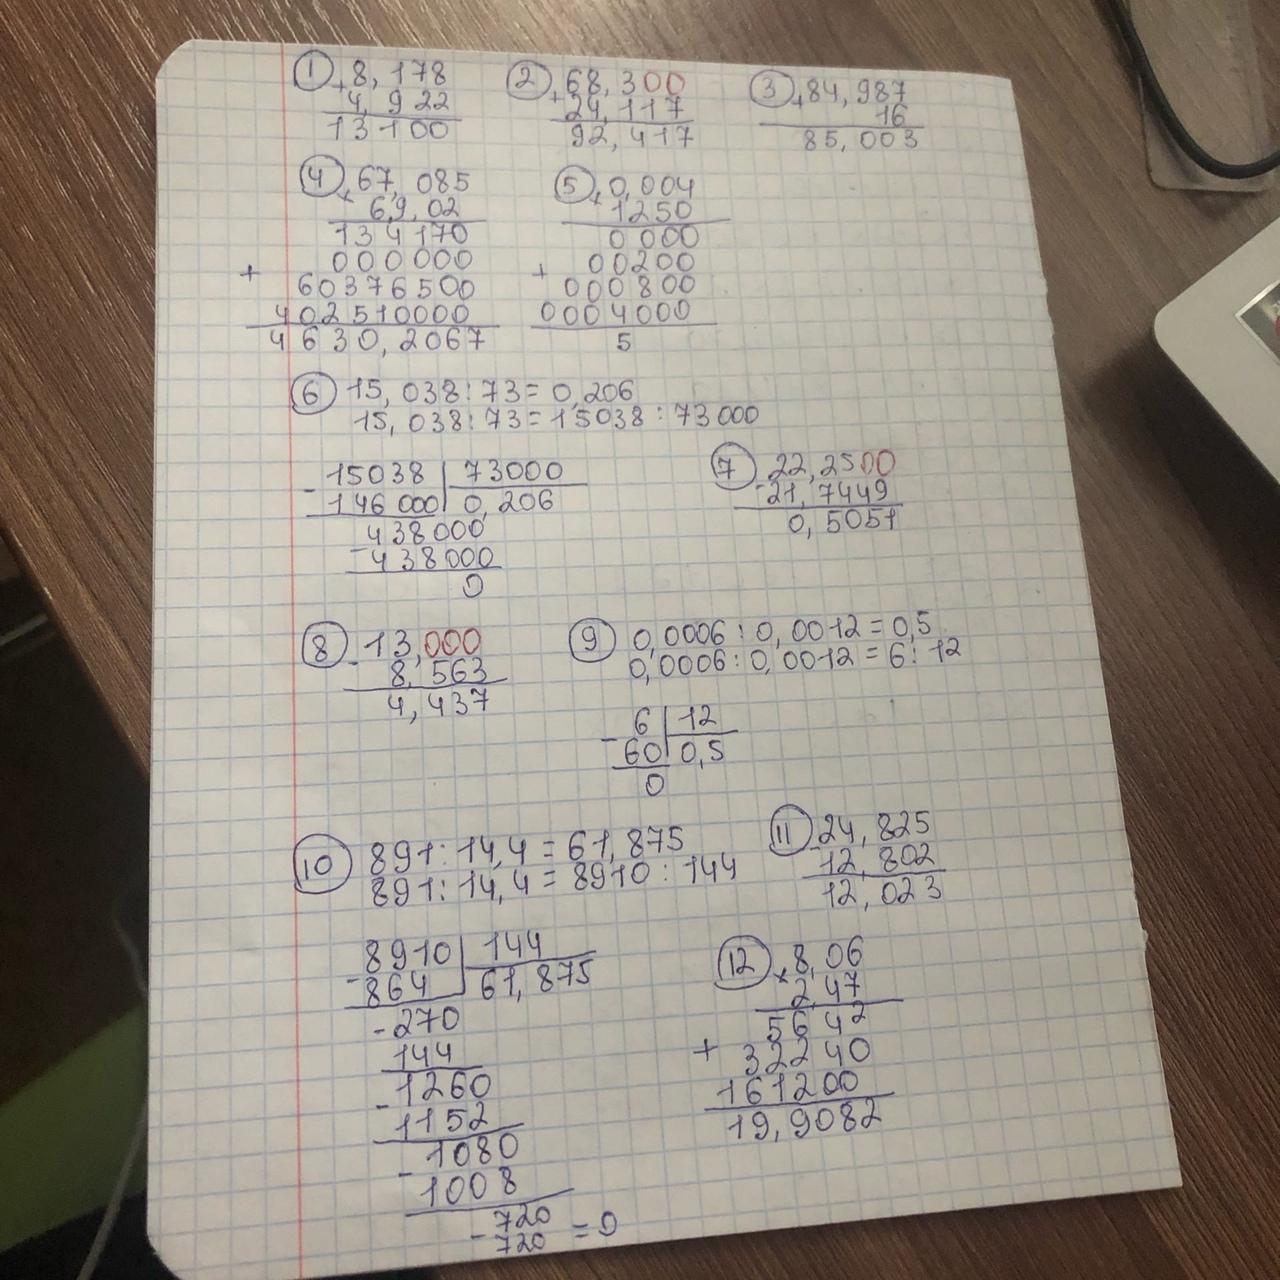 ① +8,178
4,922
13100
② +68,300
24,117
92,417
③ +84,987
16
85,003
④ ×67,085
69,02
134170
000000
+ 60376500
402510000
4630,2067
⑤ ×0,004
1250
0000
+ 00200
000800
0004000
5
⑥ 15,038:73=0,206
15,038:73=15038:73000
-15038 | 73000
146000 | 0,206
438000
-438000
0
⑦ -22,2500
21,7449
0,5051
⑧ -13,000
8,563
4,437
⑨ 0,0006:0,0012=0,5
0,0006:0,0012=6:12
-6 | 12
60 | 0,5
0
⑩ 891:14,4=61,875
891:14,4=8910:144
-8910 | 144
864 | 61,875
-270
144
-1260
1152
-1080
1008
-720
720 =0
⑪ -24,825
12,802
12,023
⑫ ×8,06
2,47
5642
+ 32240
161200
19,9082